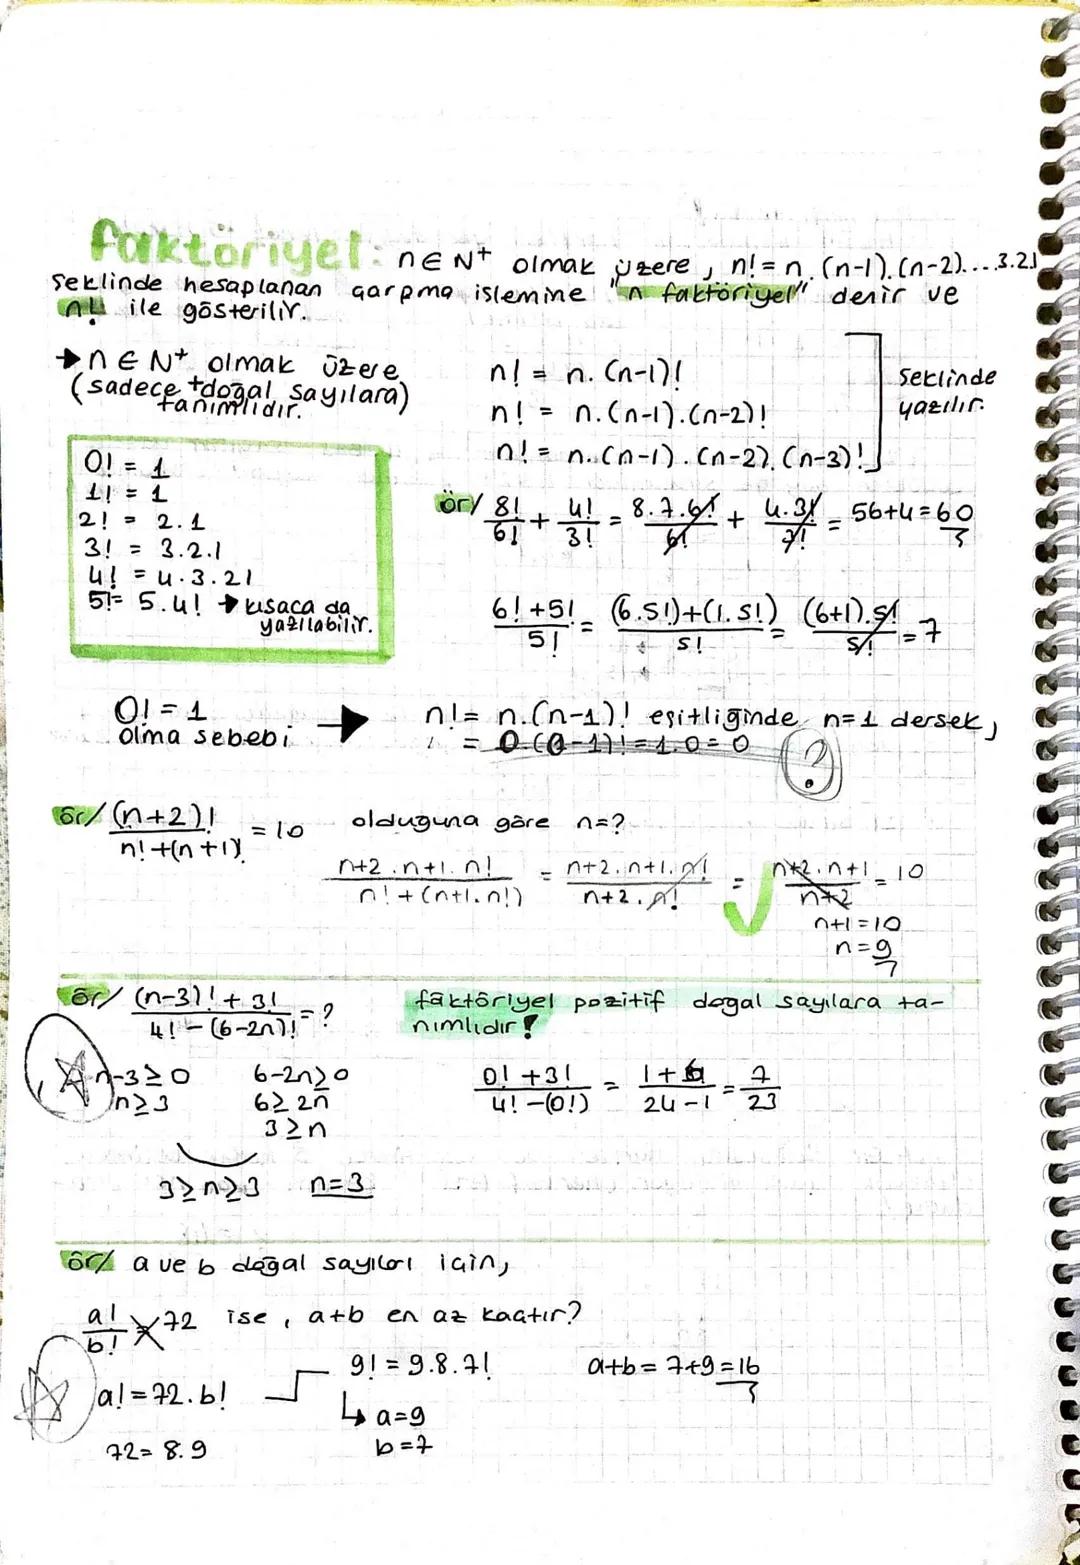 faktöriyel: n ∈ N⁺ olmak üzere, n! = n.(n-1).(n-2)....3.2.1
şeklinde hesaplanan çarpma işlemine "n faktöriyel" denir ve
n! ile gösterilir.
→ n ∈ N⁺ olmak üzere
(sadece +doğal sayılara)
tanımlıdır.
n! = n.(n-1)!
n! = n.(n-1).(n-2)!
n! = n.(n-1).(n-2).(n-3)!
şeklinde
yazılır.
0! = 1
1! = 1
2! = 2.1
3! = 3.2.1
4! = 4.3.21
5! = 5.4! → kısaca da
yazılabilir.
ör/ 8!/6! + 4!/3! = 8.7.6!/6! + 4.3!/3! = 56+4=60
6!+5!/5! = (6.5!)+(1.5!)/5! = (6+1).5!/5! = 7
0! = 1
olma sebebi → n! = n.(n-1)! eşitliğinde n=1 dersek,
= 0.(0-1)! = 1.0 = 0 ?
ör/ (n+2)!/n!+(n+1)! = 10 olduğuna göre n=?
n+2.n+1.n!/n!+(n+1.n!) = n+2.n+1.n!/n+2.n! = n+2.n+1/n+2 = 10
n+1=10
n=9
ör/ (n-3)!+3!/4!-(6-2n)! = ?
faktöriyel pozitif doğal sayılara ta-
nımlıdır!
n-3≥0 6-2n≥0
n≥3 6≥2n
3≥n
0!+3!/4!-(0!) = 1+6/24-1 = 7/23
3≥n≥3 n=3
ör/ a ve b doğal sayıları için,
a!/b! = 72 ise, a+b en az kaçtır?
a! = 72.b!
72= 8.9
9! = 9.8.7!
↳ a=9
b=7
a+b= 7+9=16